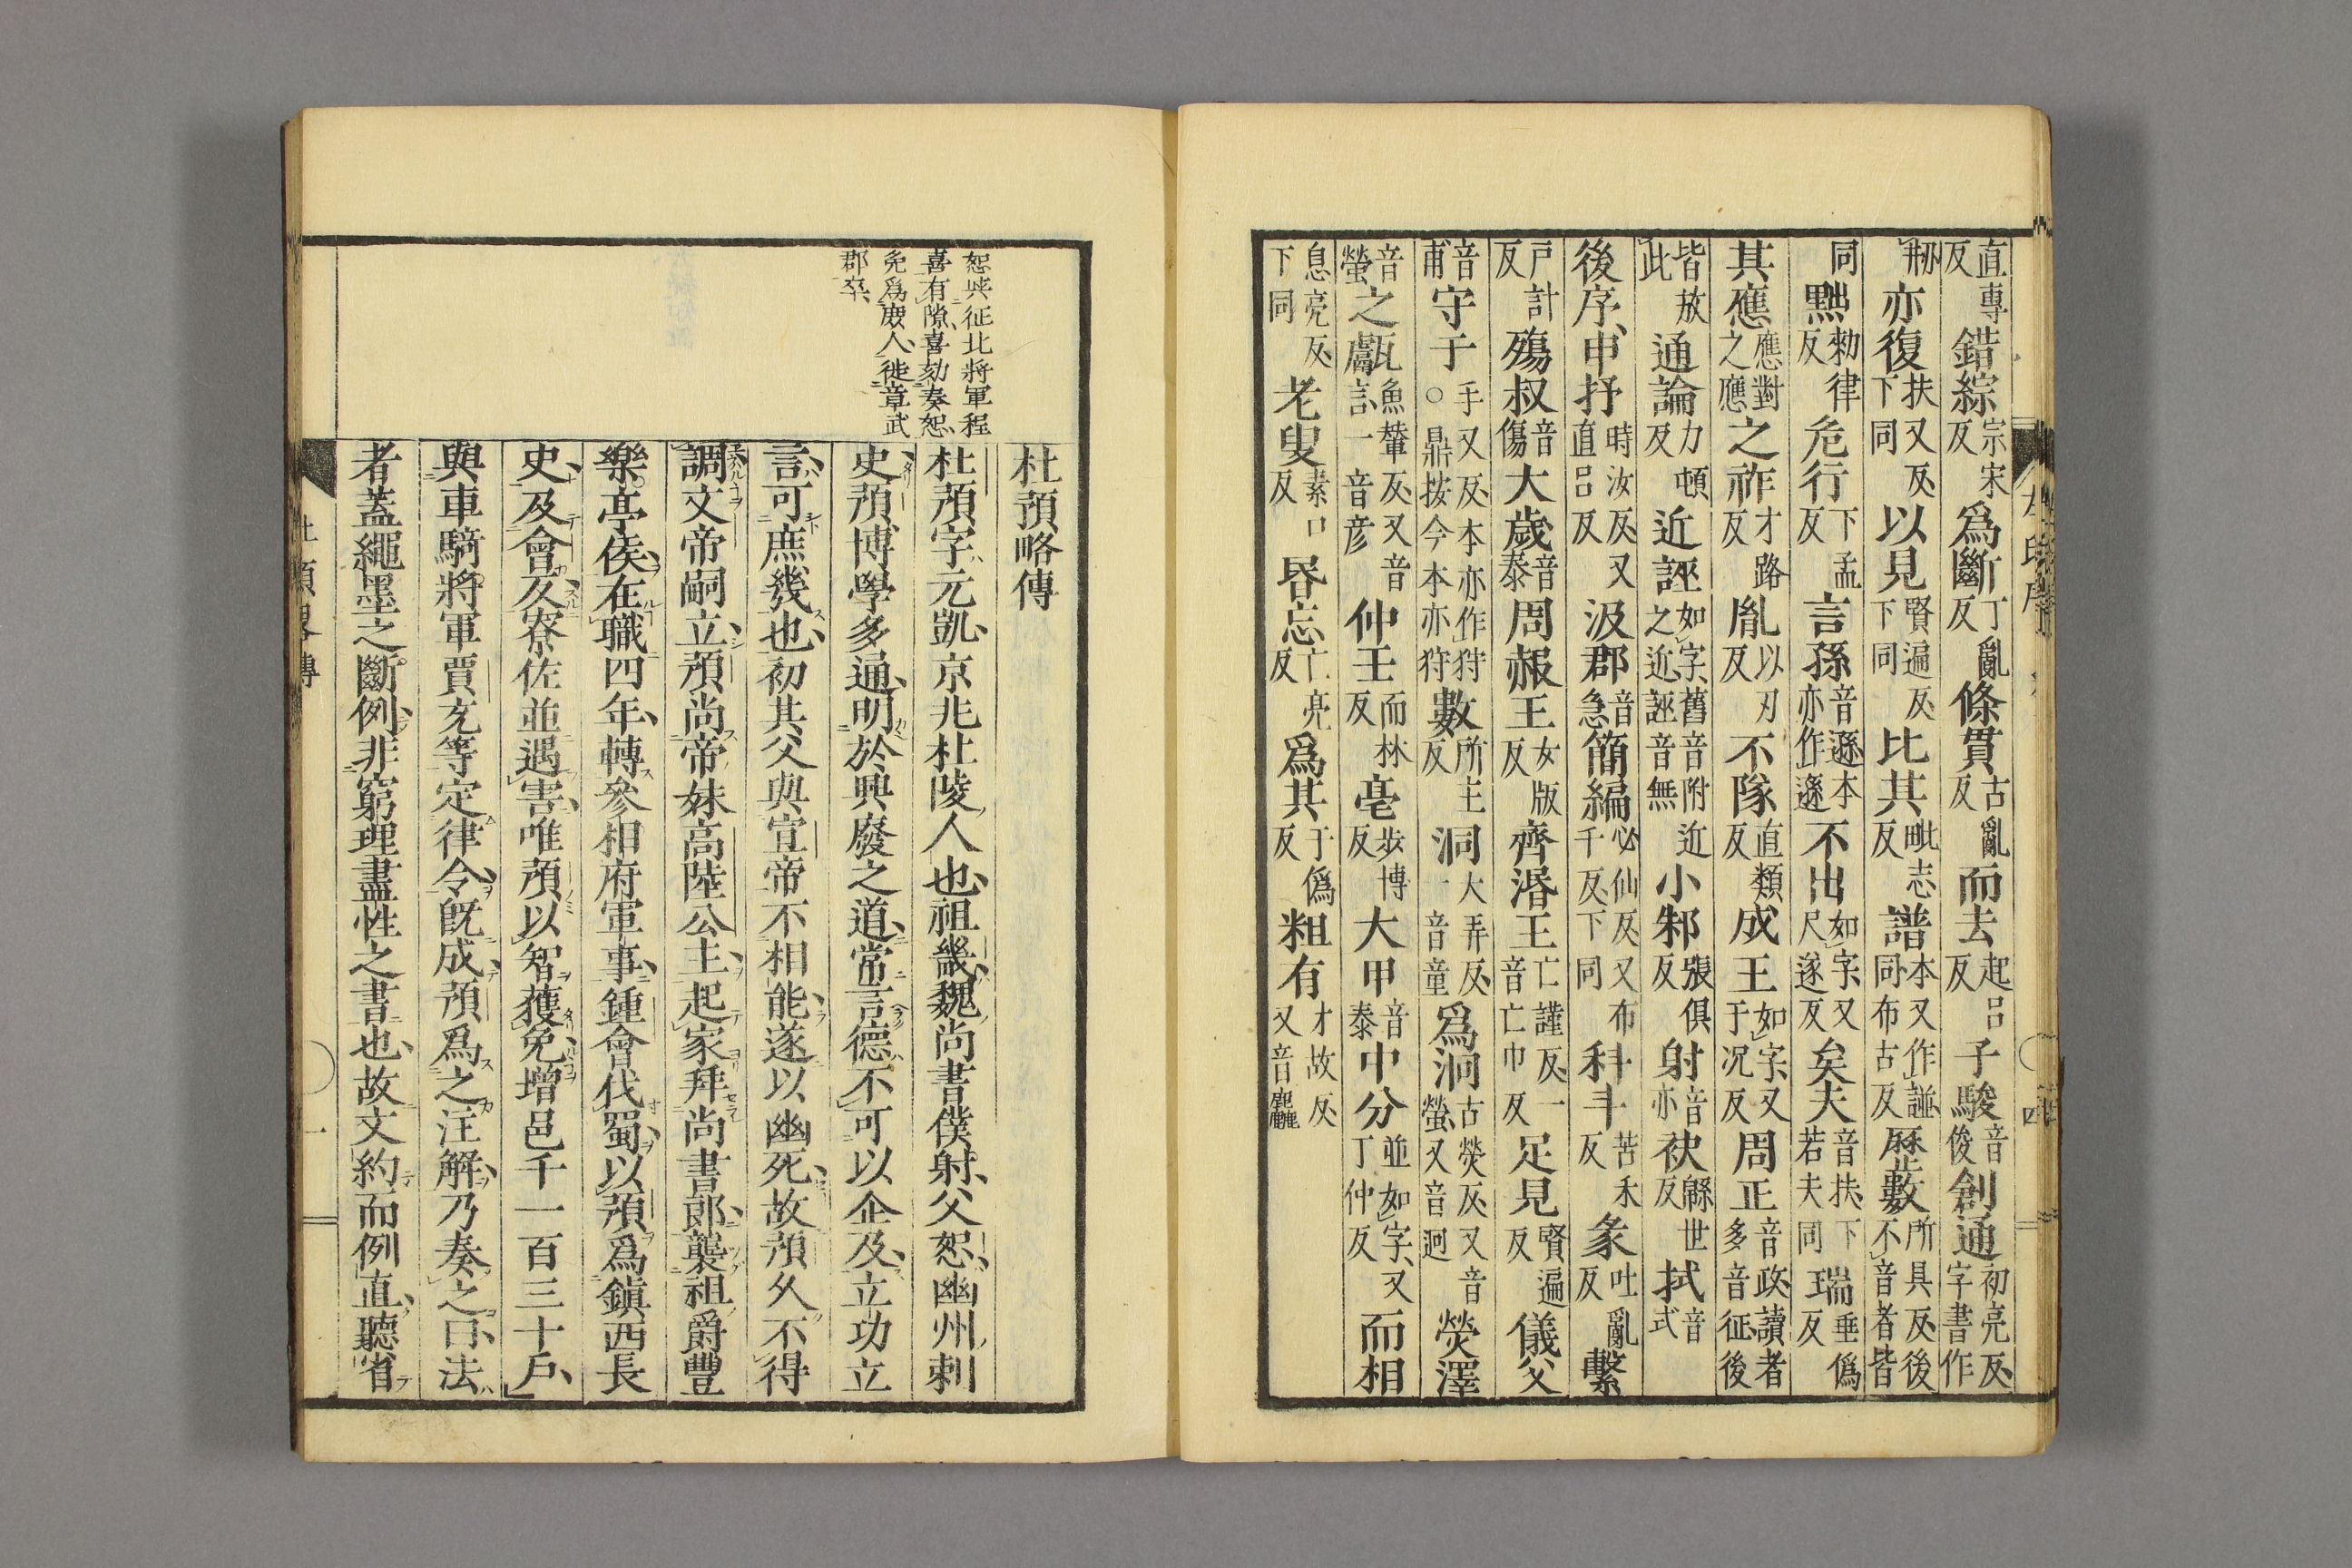 直專反錯綜宗宋反爲斷丁亂反條貫古亂反而去起呂反子駿音俊創通初亮反字書作
剏亦復扶又反下同以見賢遍反下同比其毗志反譜本又作諩同布古反歷數所具反後不音者皆
同黜勑律反危行下孟反言孫音遜本亦作遜不出如字又尺遂反矣夫音扶下若夫同瑞垂僞反
其應應對之應之祚才路反胤以刃反不隊直類反成王如字又于況反周正音政讀者多音征後
皆放此通論力頓反近誣如字舊音附近之近誣音無小邾張俱反射音亦袂緜世反拭音式
後序申抒時汝反又直呂反汲郡音急簡編必仙反又布千反下同科斗苦禾反彖吐亂反繫
戶計反殤叔音傷大歲音泰周赧王女版反齊湣王亡謹反一音亡巾反足見賢遍反儀父
音甫守于手又反本亦作狩○鼎按今本亦狩數所主反洞大弄反一音童爲泂古熒反又音螢又音迥熒澤
音螢之甗魚輦反又音言一音彦仲壬而林反亳步博反大甲音泰中分並如字又丁仲反而相
息亮反下同老叟素口反昬忘亡亮反爲其于僞反粗有才故反又音麤
恕與征北將軍程
喜有隙喜劾奏恕
免爲庶人徙章武
郡卒
杜預略傳
杜預字元凱京兆杜陵人也祖畿魏尚書僕射父恕幽州刺
史預博學多通明於興廢之道常言德不可以企及立功立
言可庶幾也初其父與宣帝不相能遂以幽死故預久不得
調文帝嗣立預尚帝妹高陸公主起家拜尚書郎襲祖爵豐
樂亭侯在職四年轉參相府軍事鍾會代蜀以預爲鎮西長
史及會反寮佐並遇害唯預以智獲免增邑千一百三十戶
與車騎將軍賈充等定律令既成預爲之注解乃奏之曰法
者蓋繩墨之斷例非窮理盡性之書也故文約而例直聽省
杜預略傳
一
四